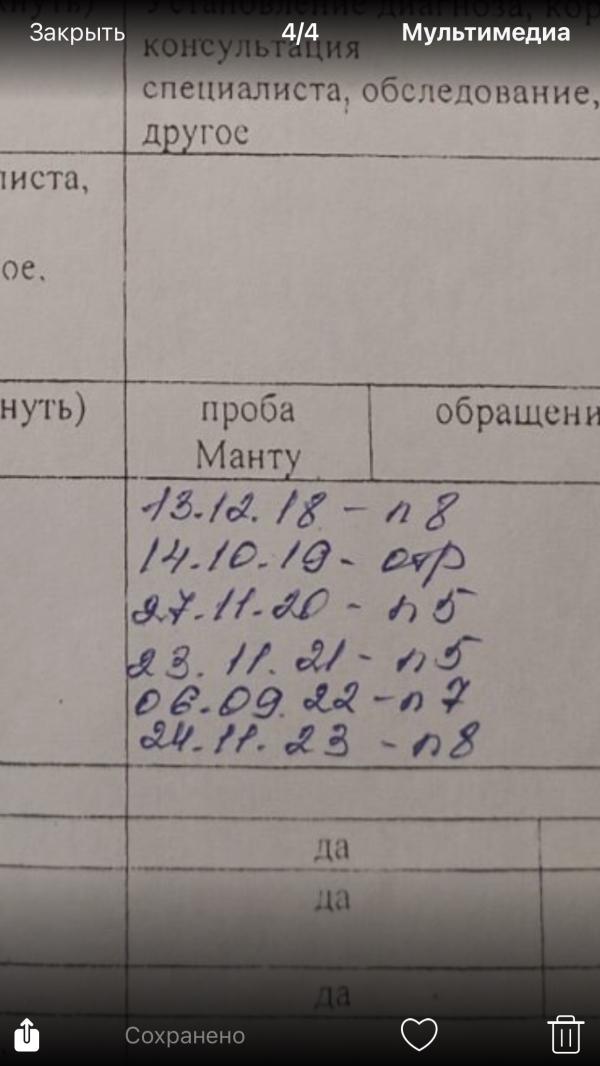 Закрыть 4/4 Мультимедиа
Установление диагноза, кор
консультация
специалиста, обследование,
другое
листа,
ое.
нуть) проба обращени
Манту
13.12.18 - п 8
14.10.19 - отр
27.11.20 - п 5
23.11.21 - п 5
06.09.22 - п 7
24.11.23 - п 8
да
да
да
Сохранено